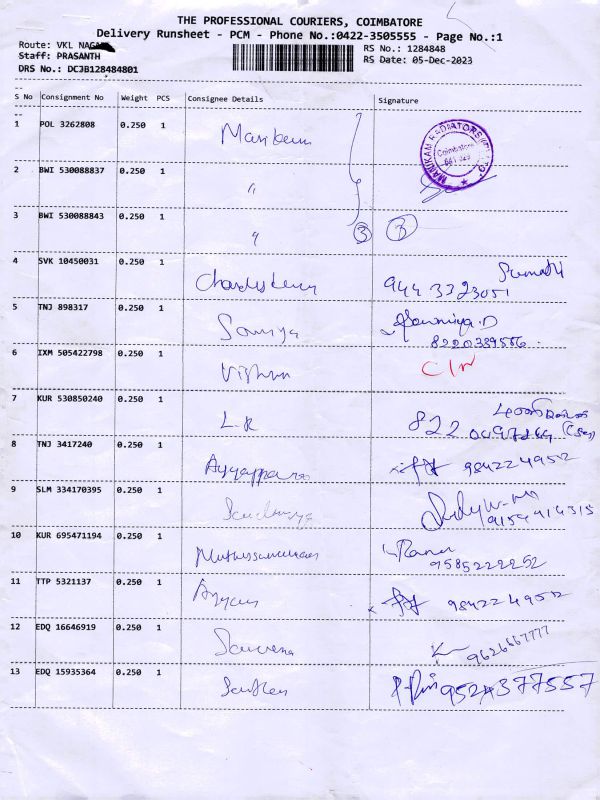 THE PROFESSIONAL COURIERS, COIMBATORE
Delivery Runsheet - PCM - Phone No.:0422-3505555 - Page No.:1
Route: VKL NAGAR
RS No.: 1284848
Staff: PRASANTH
RS Date: 05-Dec-2023
DRS No.: DCJB128484801
S No Consignment No Weight PCS Consignee Details Signature
1 POL 3262808 0.250 1
MANIKAM RADIATORS
Coimbatore
2 BWI 530088837 0.250 1 "
3 BWI 530088843 0.250 1 " 3 3
4 SVK 10450031 0.250 1
9443323051
5 TNJ 898317 0.250 1 Sowmya Sowmiya.D
8220389566
6 IXM 505422798 0.250 1 Vishnu
7 KUR 530850240 0.250 1 L.K
8 TNJ 3417240 0.250 1 Ayyappan 9842249512
9 SLM 334170395 0.250 1
9154914315
10 KUR 695471194 0.250 1 Rana
9585222252
11 TTP 5321137 0.250 1 9842249512
12 EDQ 16646919 0.250 1 9626667777
13 EDQ 15935364 0.250 1 9524377557